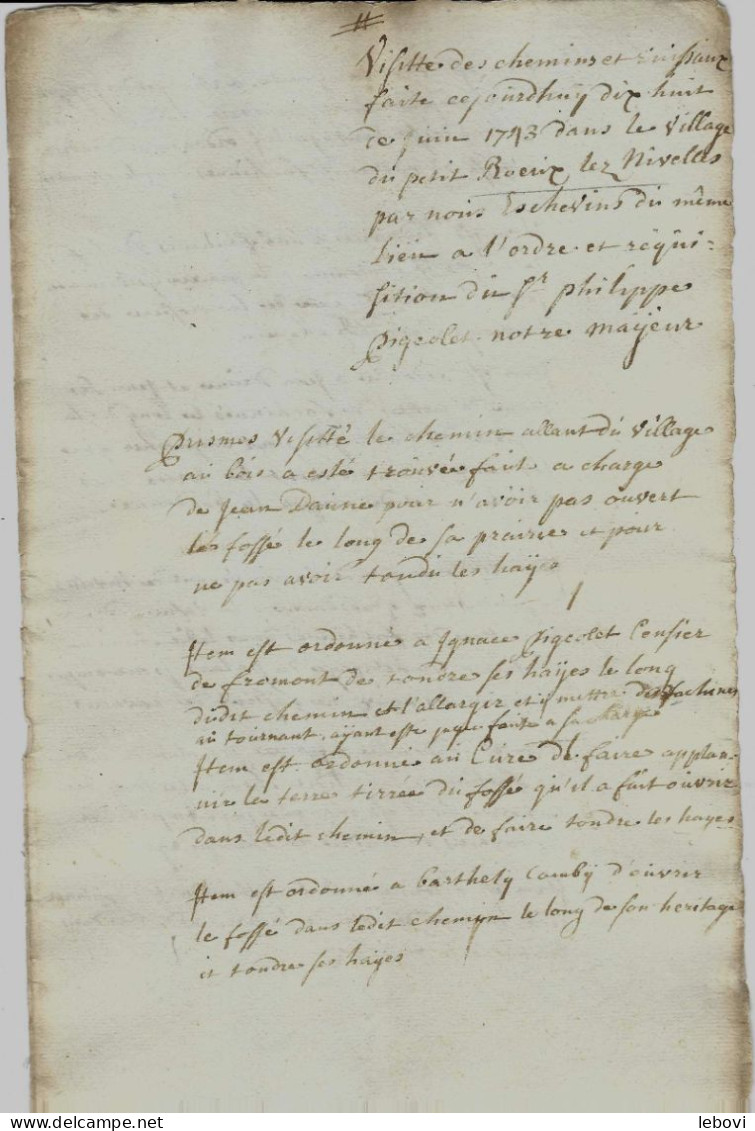 Visitte des chemins et ruissaux
faite cejourdhuy dix huit
de juin 1743 dans le village
du petit Roeux lez Nivelles
par nous Eschevins du même
lieu a l'ordre et requi-
sition du Sr philippe
Pigeolet notre maÿeur
Primes visitté le chemin allant du village
au bois a esté trouvée fait a charge
de Jean Daune pour n'avoir pas ouvert
les fossé le long de sa prairie et pour
ne pas avoir tondu les haÿes
Item est ordonné a Ignace Pigeolet Censier
de fromont de tondre ses haÿes le long
dudit chemin et l'allargir et y mettre des fachines
au tournant, aÿant esté jugé faute a sa charge
Item est ordonné au Curé de faire applan-
nir le terre tirrée du fossé qu'il a fait ouvrir
dans ledit chemin, et de faire tondre les hayes
Item est ordonné a barthely Camby d'ouvrir
le fossé dans ledit chemyn le long de son heritage
et tondre ses haÿes
lebovi